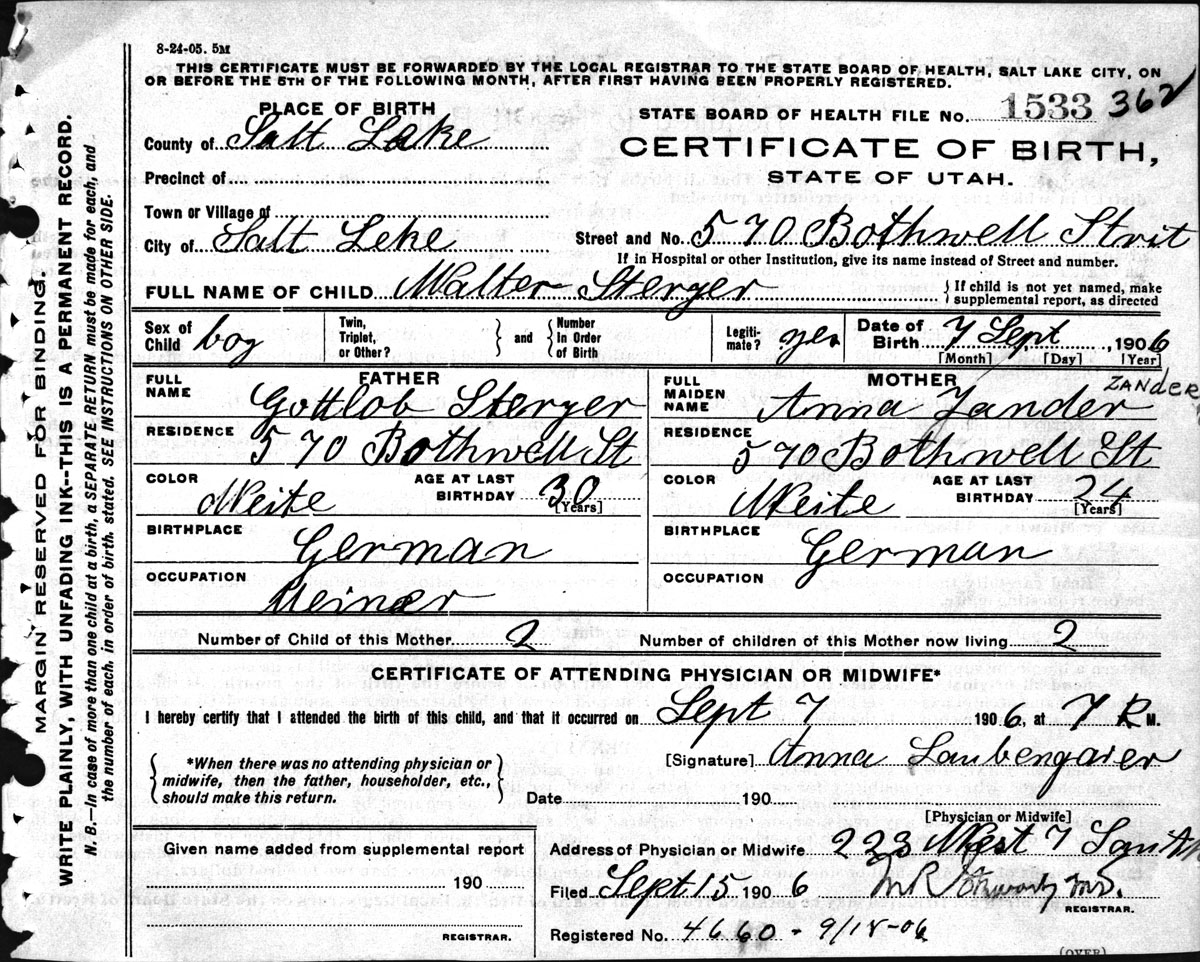 8-24-05. 5M
THIS CERTIFICATE MUST BE FORWARDED BY THE LOCAL REGISTRAR TO THE STATE BOARD OF HEALTH, SALT LAKE CITY, ON
OR BEFORE THE 5TH OF THE FOLLOWING MONTH, AFTER FIRST HAVING BEEN PROPERLY REGISTERED.
PLACE OF BIRTH
County of Salt Lake
Precinct of
Town or Village of
City of Salt Leke
STATE BOARD OF HEALTH FILE No. 1533 362
CERTIFICATE OF BIRTH,
STATE OF UTAH.
Street and No. 570 Bothwell Strit
If in Hospital or other Institution, give its name instead of Street and number.
FULL NAME OF CHILD Walter Sterger
If child is not yet named, make
supplemental report, as directed
Sex of Child boy
Twin, Triplet, or Other? and Number in Order of Birth
Legiti-mate? yes
Date of Birth 7 Sept, 1906
[Month] [Day] [Year]
FATHER
FULL NAME Gottlob Sterger
RESIDENCE 570 Bothwell St
COLOR Weite AGE AT LAST BIRTHDAY 30
[Years]
BIRTHPLACE German
OCCUPATION Meiner
MOTHER
ZANDER
FULL MAIDEN NAME Anna Zander
RESIDENCE 570 Bothwell St
COLOR Weite AGE AT LAST BIRTHDAY 24
[Years]
BIRTHPLACE German
OCCUPATION
Number of Child of this Mother 2 Number of children of this Mother now living 2
CERTIFICATE OF ATTENDING PHYSICIAN OR MIDWIFE*
I hereby certify that I attended the birth of this child, and that it occurred on Sept 7 1906, at 7 M.
*When there was no attending physician or
midwife, then the father, householder, etc.,
should make this return.
[Signature] Anna Laubengaier
Date 190
[Physician or Midwife]
Address of Physician or Midwife 223 West 7 South
Given name added from supplemental report
190
REGISTRAR.
Filed Sept 15 1906
REGISTRAR.
Registered No. 4660 - 9/18-06
(OVER)
MARGIN RESERVED FOR BINDING
WRITE PLAINLY, WITH UNFADING INK--THIS IS A PERMANENT RECORD.
N. B.—In case of more than one child at a birth, a SEPARATE RETURN must be made for each, and
the number of each, in order of birth, stated. SEE INSTRUCTIONS ON OTHER SIDE.